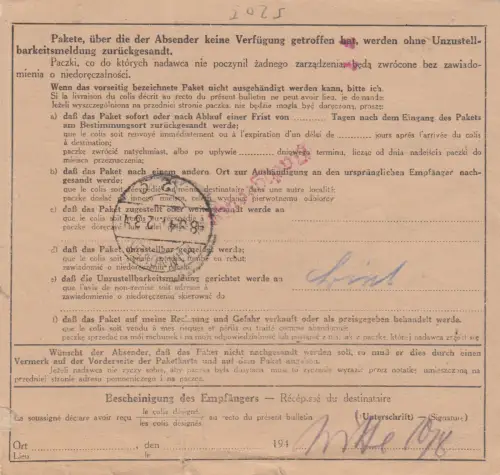 2025
Pakete, über die der Absender keine Verfügung getroffen hat, werden ohne Unzustell-
barkeitsmeldung zurückgesandt.
Paczki, co do których nadawca nie poczynił żadnego zarządzenia będą zwrócone bez zawiado-
mienia o niedoręczalności.
Wenn das vorseitig bezeichnete Paket nicht ausgehändigt werden kann, bitte ich:
Si la livraison du colis décrit au recto du présent bulletin ne peut avoir lieu, je demande:
Jeżeli wyszczególniona na przedniej stronie paczka, nie będzie mogła być doręczona, proszę:
a) daß das Paket sofort oder nach Ablauf einer Frist von Tagen nach dem Eingang des Pakets
am Bestimmungsort zurückgesandt werde;
que le colis soit renvoyé immédiatement ou à l'expiration d'un délai de jours après l'arrivée du colis
à destination;
paczkę zwrócić natychmiast, albo po upływie dniowego terminu, licząc od dnia nadejścia paczki do
miejsca przeznaczenia;
b) daß das Paket nach einem andern Ort zur Aushändigung an den ursprünglichen Empfänger nach-
gesandt werde;
que le colis soit réexpédié au même destinataire dans une autre localité;
paczkę dosłać do innego miejsca, celem wydania pierwotnemu odbiorcy
c) daß das Paket zugestellt oder versandt werde an
que le colis soit remis ou réexpédié à
paczkę doręczyć
d) daß das Paket unzustellbar gemeldet werde;
zawiadomić o niedoręczalności
e) daß die Unzustellbarkeitsmeldung gerichtet werde an
que l'avis de non-remise soit adressé à
zawiadomienie o niedoręczalności skierować do
f) daß das Paket auf meine Rechnung und Gefahr verkauft oder als preisgegeben behandelt werde.
que le colis soit vendu à mes risques et périls ou traité comme abandonné;
paczkę sprzedać na mój rachunek i na moją odpowiedzialność lub postąpić z nią jak z paczką, której nadawca zrzekł się
Wünscht der Absender, daß das Paket nicht nachgesandt werden soll, so muß er dies durch einen
Vermerk auf der Vorderseite der Paketkarte und auf dem Paket angeben.
Jeżeli nadawca nie życzy sobie, aby paczka była dosłana musi to życzenie wyrazić przez notatkę umieszczoną na
przedniej stronie adresu pomocniczego i na paczce.
Bescheinigung des Empfängers — Récépissé du destinataire
Le soussigné déclare avoir reçu le colis désigné les colis désignés au recto du présent bulletin (Unterschrift) — (Signature)
Ort , den 194
Lieu le